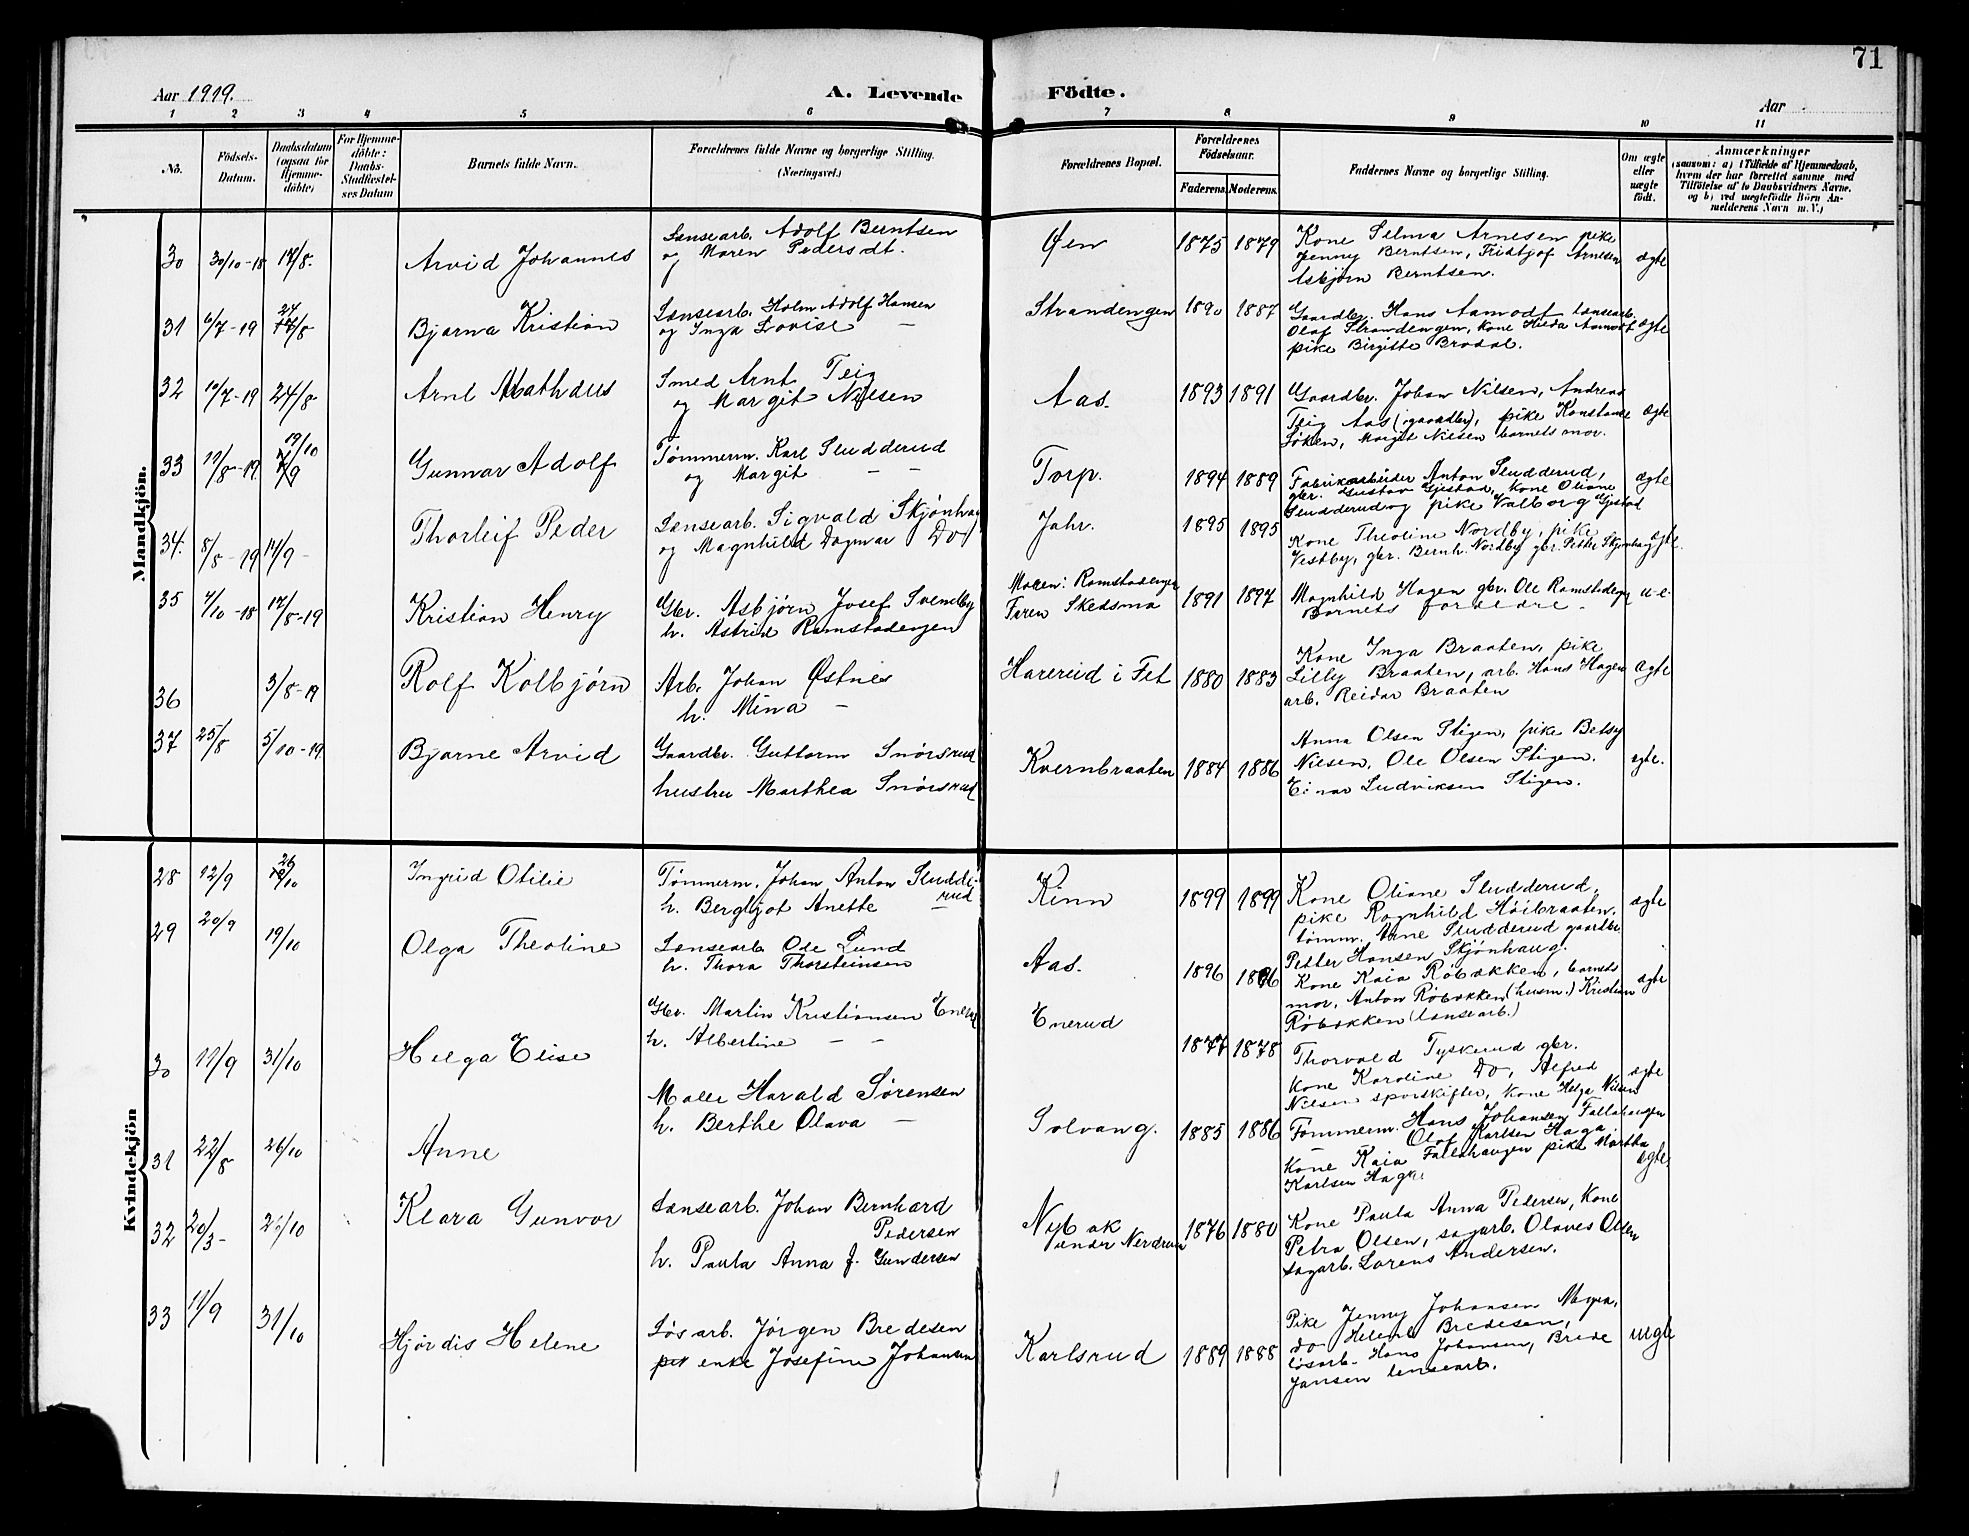 71
Aar 1919.
A. Levende
Födte.
Aar
1 2 3 4 5 6 7 8 9 10 11
No.
Födsels-
Datum.
Daabsdatum
(ogsaa for
Hjemme-
döbte)
For Hjemme-
döbte:
Daabs-
Stadfæstel-
ses Datum
Barnets fulde Navn.
Forældrenes fulde Navne og borgerlige Stilling.
(Næringsvei.)
Forældrenes Bopæl.
Forældrenes
Födselsaar.
Faderens. Moderens.
Faddernes Navne og borgerlige Stilling.
Om ægte
eller
uægte
født.
Anmærkninger
(saasom: a) i Tilfælde af Hjemmedaab,
hvem der har forrettet samme med
Tilföielse af to Daabsvidners Navne,
og b) ved uægtefödte Börn An-
melderens Navn m. V.)
Mandkjön.
30 30/10-18 17/8. Arvid Johannes
Lænsearb. Adolf Berntsen
og Maren Pedersdt.
Øen 1875 1879
Kone Selma Arnesen pike
Jenny Berntsen, Fridtjof Arnesen
Asbjørn Berntsen.
ægte
31 6/7-19 24/8 Bjarne Kristian
Lænsearb. Holm Adolf Hansen
og Inga Lovise —
Strandengen 1890 1887
Gaardbr. Hans Aamodt lænsearb.
Olaf Strandengen, kone Hilda Aamodt
pike Birgitte Brodal.
ægte
32 10/7-19 24/8 Arne Mathæus
Smed Arnt Teig
og Margit Nilsen
Aas. 1893 1891
Gaardbr. Johan Nilsen, Andreas
Teig Aas (gaardbr), pike Konstanse
Løken, Margit Nilsen barnets mor.
ægte
33 19/8-19 19/10 7/9 Gunnar Adolf
Tømmerm. Karl Sludderud
og Margit — —
Torp. 1894 1889
Fabrikarbeider Anton Sludderud,
gbr. Gustav Gjestad, Kone Oliane
Sludderud og pike Valborg Gjestad
ægte
34. 8/8-19 14/9- Thorleif Peder
Lænsearb. Sigvald Skjønhaug
og Magnhild Dagmar Do/
Jahr. 1895 1895
Kone Theoline Nordby, pike
Vestby, gbr. Bernh. Nordby gbr. Petter Skjønhaug
ægte.
35 7/10-18 17/8-19 Kristian Henry
Gbr. Asbjørn Josef Svendby
h. Astrid Ramstadengen
Moren: Ramstadengen
Faren Skedsmo 1891 1897
Magnhild Hagen gbr. Ole Ramstadengen
Barnets foreldre.
u-e-
36 3/8-19 Rolf Kolbjørn
Arb. Johan Østnes
h. Mina —
Harereid i Fet 1880 1883
Kone Inga Braaten, pike
Lilly Braaten, arb. Hans Hagen
arb. Reidar Braaten
ægte
37 25/8 5/10-19 Bjarne Arvid
Gaardbr. Guttorm Snørsrud
hustru Marthea Snørsrud
Kvernbraaten 1884 1886
Anna Olsen Stigen, pike Betsy
Nilsen, Ole Olsen Stigen.
Einar Ludviksen Stigen.
ægte.
Kvindekjön
28 12/9 26/10 Ingrid Otilie
Tømmerm. Johan Anton Sludde-
rud
h. Bergljot Anette —
Kinn 1899 1899
Kone Oliane Sludderud,
pike Ragnhild Høibraaten.
tømm. Arne Sludderud gaardbr
Petter Hansen Skjønhaug.
ægte
29 20/9 19/10 Olga Theoline
Lænsearb Ole Lund
h. Thora Thorsteinsen
Aas. 1896 1896
Kone Kaia Røbækken, barnets
mor, Anton Røbækken (husm.) Kristian
Røbækken (lænsearb.)
ægte
30 19/9 31/10 Helga Elise
Gbr. Martin Kristiansen Enerud
h. Albertine — —
Enerud 1877 1878
Thorvald Tyskerud gbr.
kone Karoline Do, Alfred
Nilsen sporskifter, kone Helga Nilsen
ægte
31 22/8 26/10 Anne
Maler Harald Sørensen
h. Berthe Olava —
Solvang. 1885 1886
Tømmerm. Hans Johansen Fallahaugen
Olaf Karlsen Haga.
Kone Kaia Fallahaugen pike Martha
Karlsen Haga
ægte.
32 20/3- 26/10 Klara Gunvor
Lænsearb. Johan Bernhard
Pedersen
h. Paula Anna f. Gundersen
Nybak
under Nerdrum 1876 1880
Kone Paula Anna Pedersen, Kone
Petra Olsen, sagarb. Olaves Olsen
sagarb. Lorens Andersen.
33 11/9 31/10 Hjørdis Helene
Løsarb. Jørgen Bredesen
enke Josefine Johansen
Karlsrud 1889 1888
Pike Jenny Johansen
Do Helene Bredesen,
løsarb. Hans Johansen, Brede
Jansen lænsearb.
uægte